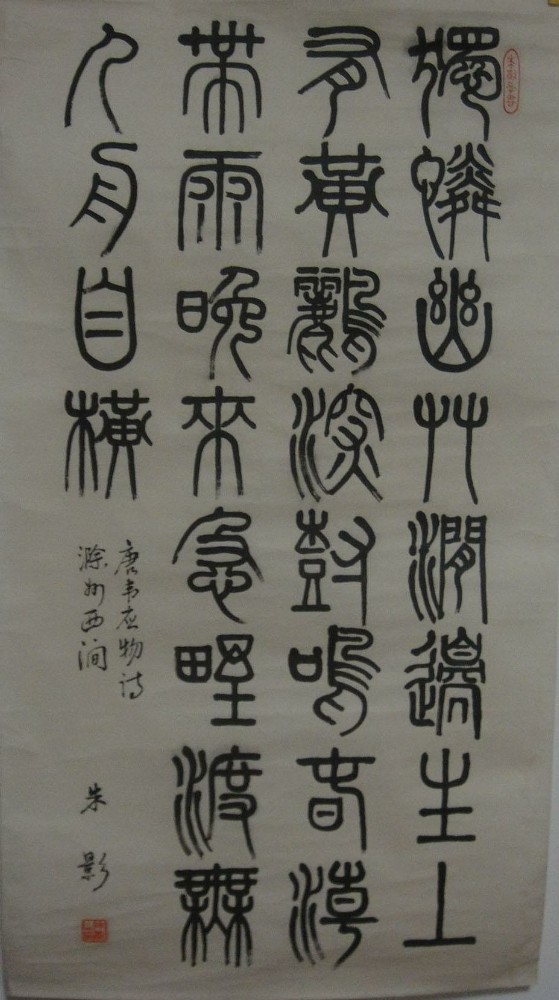 獨憐幽艸澗邊生上
有黃鸝深尌鳴春潮
帶雨晚來急野渡無
人舟自橫
唐韦应物诗
滁州西涧
朱影